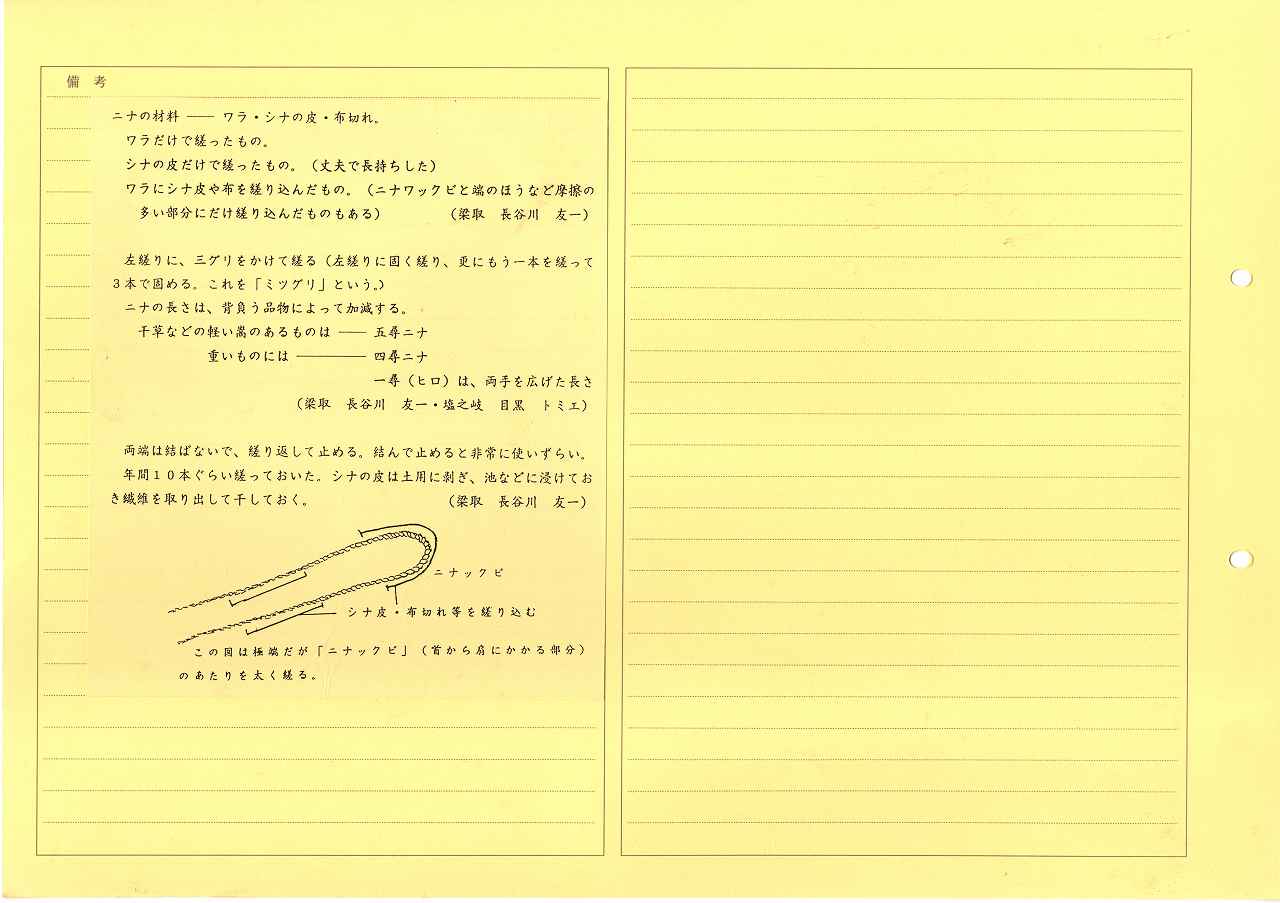 備 考
ニナの材料 ―― ワラ・シナの皮・布切れ。
ワラだけで縒ったもの。
シナの皮だけで縒ったもの。（丈夫で長持ちした）
ワラにシナ皮や布を縒り込んだもの。（ニナワックビと端のほうなど摩擦の
多い部分にだけ縒り込んだものもある）　（梁取　長谷川　友一）
左縒りに、三グリをかけて縒る（左縒りに固く縒り、更にもう一本を縒って
３本で固める。これを「ミツグリ」という。）
ニナの長さは、背負う品物によって加減する。
干草などの軽い嵩のあるものは ―― 五尋ニナ
重いものには ――――― 四尋ニナ
一尋（ヒロ）は、両手を広げた長さ
（梁取　長谷川　友一・塩之岐　目黒　トミエ）
両端は結ばないで、縒り返して止める。結んで止めると非常に使いずらい。
年間１０本ぐらい縒っておいた。シナの皮は土用に剥ぎ、池などに浸けてお
き繊維を取り出して干しておく。　（梁取　長谷川　友一）
ニナックビ
シナ皮・布切れ等を縒り込む
この図は極端だが「ニナックビ」（首から肩にかかる部分）
のあたりを太く縒る。